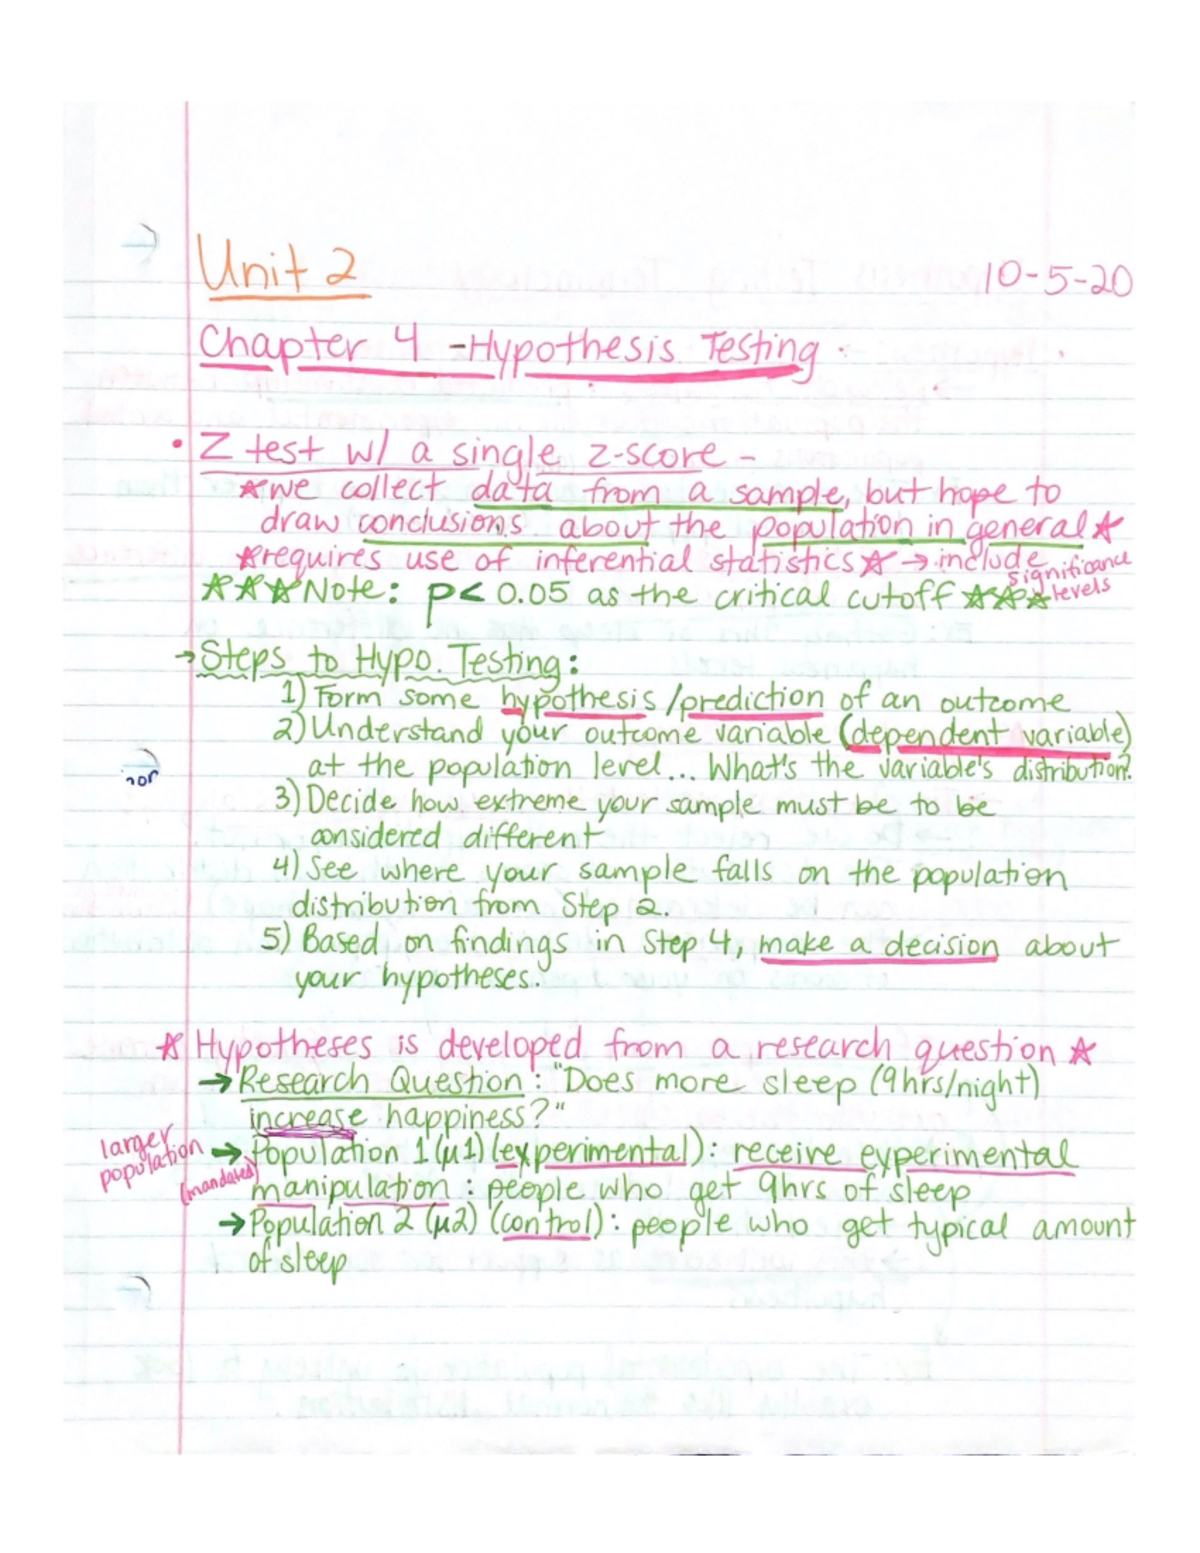 Unit 2
10-5-20
Chapter 4 - Hypothesis Testing
• Z test w/ a single z-score -
★we collect data from a sample, but hope to
draw conclusions about the population in general★
★requires use of inferential statistics★ → include
significance
levels
★★★Note: p< 0.05 as the critical cutoff ★★★
→Steps to Hypo. Testing:
1) Form some hypothesis /prediction of an outcome
2) Understand your outcome variable (dependent variable)
at the population level... What's the variable's distribution?
3) Decide how extreme your sample must be to be
considered different
4) See where your sample falls on the population
distribution from Step 2.
5) Based on findings in Step 4, make a decision about
your hypotheses.
★ Hypotheses is developed from a research question ★
→Research Question: "Does more sleep (9hrs/night)
increase happiness?"
larger
population
→ Population 1 (μ1) (experimental): receive experimental
(mandated)
manipulation: people who get 9hrs of sleep
→ Population 2 (μ2) (control): people who get typical amount
of sleep